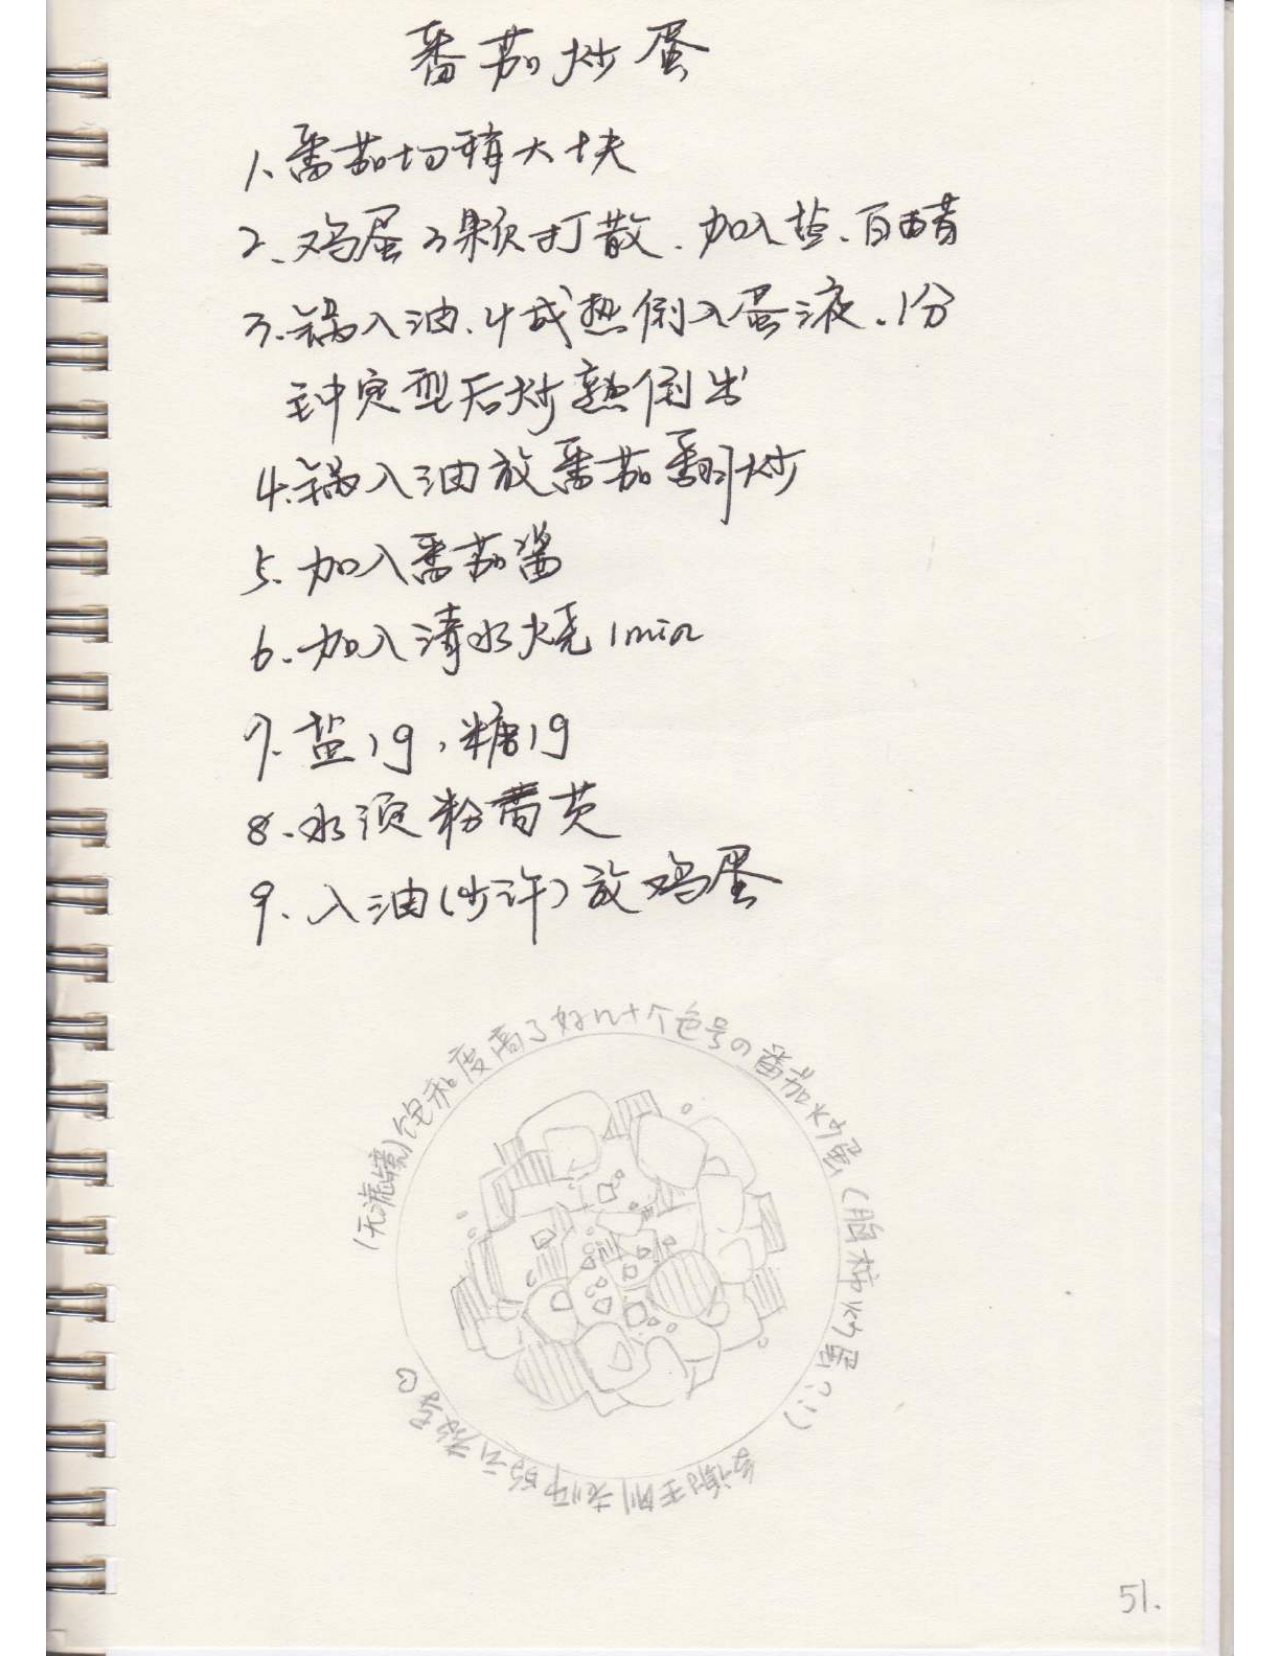 番茄炒蛋
1、番茄切稍大块
2、鸡蛋3颗打散、加入盐、白醋
3、锅入油、4成热倒入蛋液、1分
钟定型后炒熟倒出
4、锅入油放番茄翻炒
5、加入番茄酱
6、加入清水烧1min
7、盐1g，糖1g
8、水淀粉勾芡
9、入油（少许）放鸡蛋
（无滤镜）饱和度高了好n十个色号の番茄炒蛋（
炒蛋
王刚老师的
51.